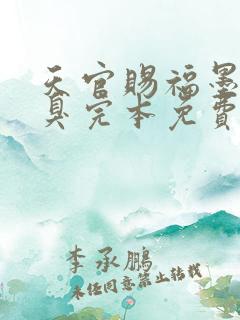 天官赐福墨
真完本免费
李承鹏
未经同意禁止转载